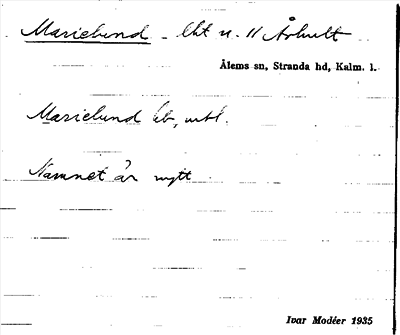 Marielund - lht u. 11 Århult
Ålems sn, Stranda hd, Kalm. l.
Marielund eb, urbl.
Namnet är nytt
Ivar Modéer 1935